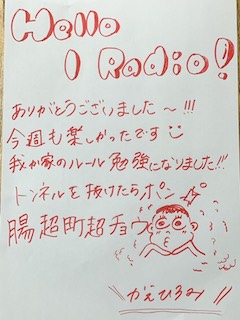 Hello
I Radio!
ありがとうございました〜!!!
今週も楽しかったです
我が家のルール勉強になりました!!
トンネルを抜けたらポン
腸超町超チョウ
かえひろみ